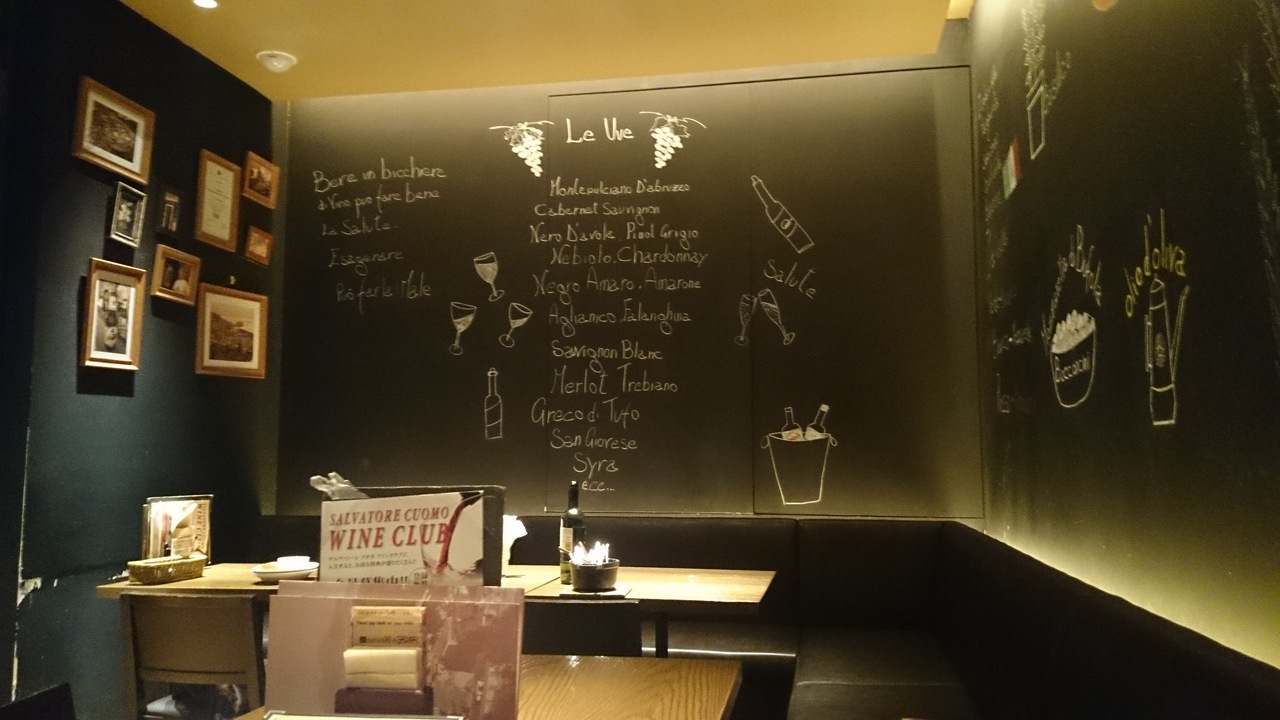 Le Uve
Bere un bicchiere
di Vino può fare bene
La Salute.
Esagerare
Può farle Male
Montepulciano D'abruzzo
Cabernet Sauvignon
Nero D'avola. Pinot Grigio
Nebiolo. Chardonnay
Negro Amaro. Amarone
Aglianico. Falanghina
Sauvignon Blanc
Merlot Trebiano
Greco di Tufo
San Giovese
Syra
ecc...
Salute
Bocconcini
olio d'oliva
SALVATORE CUOMO
WINE CLUB